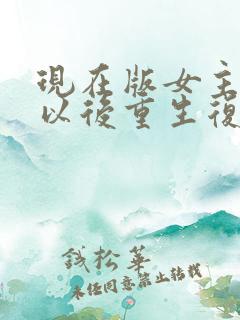 現在版女主
以後重生復
錢松華
未經同意禁止轉載